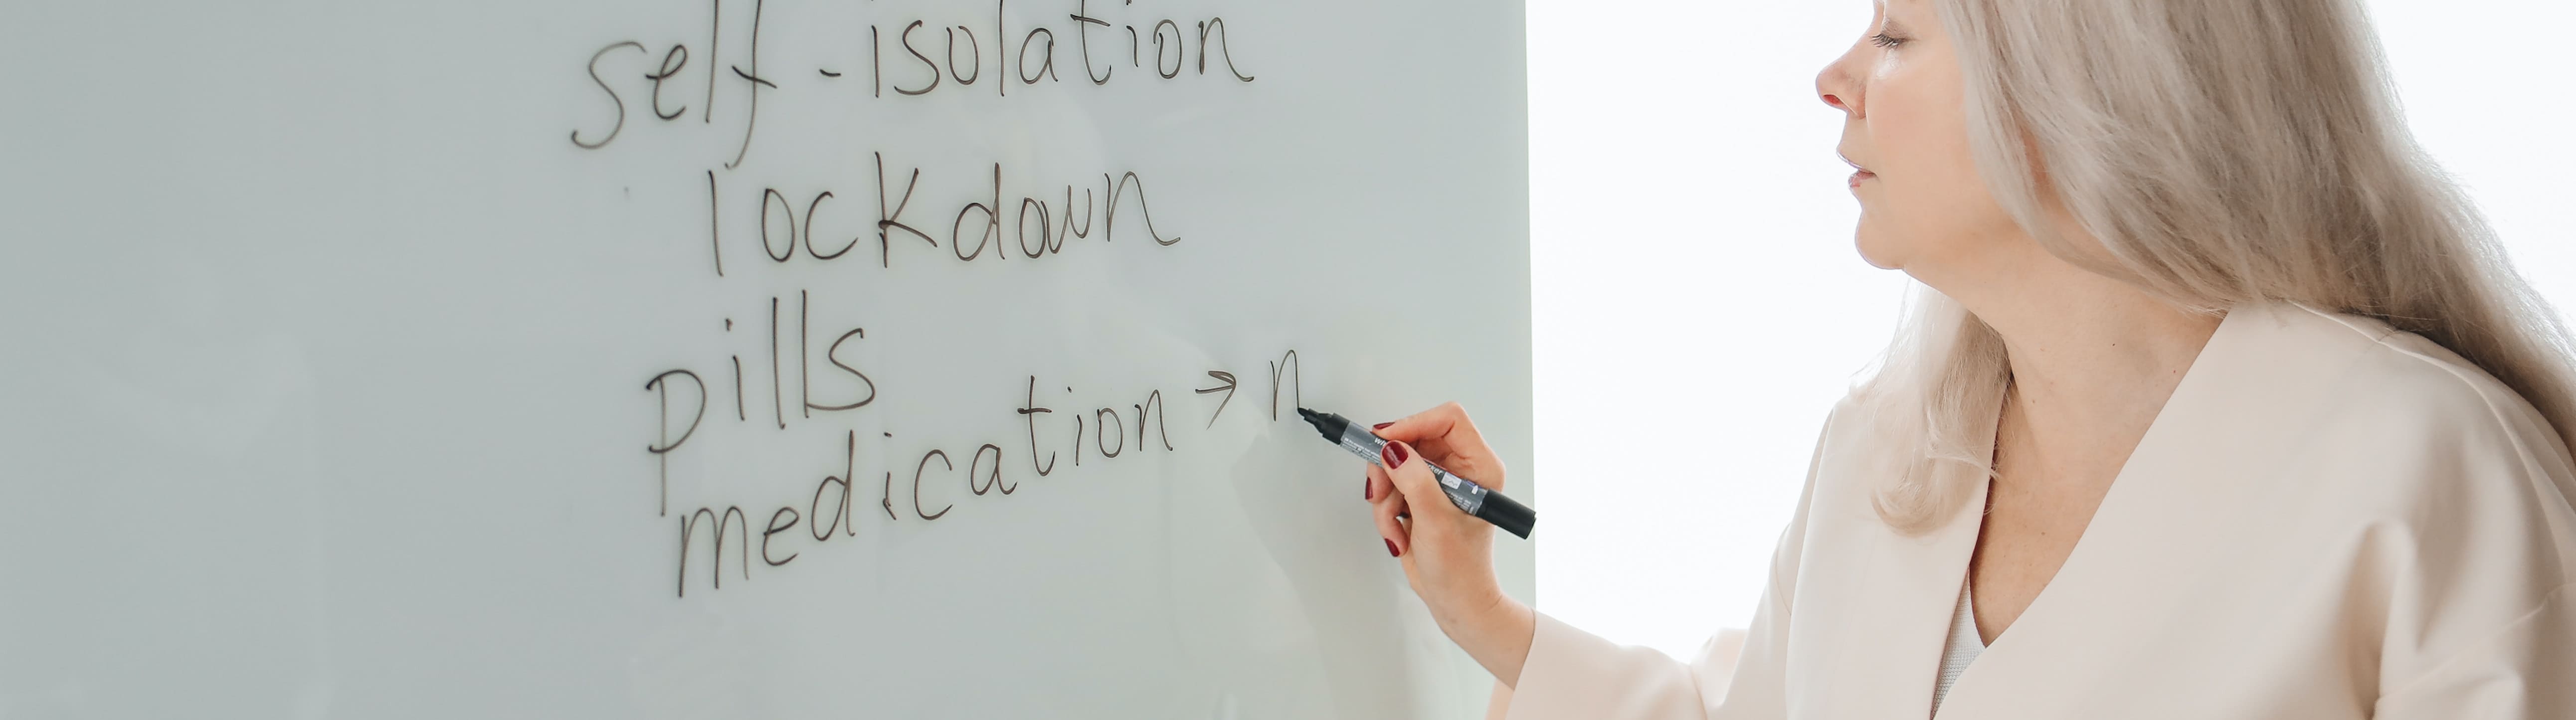 self-isolation
lockdown
pills
medication → n